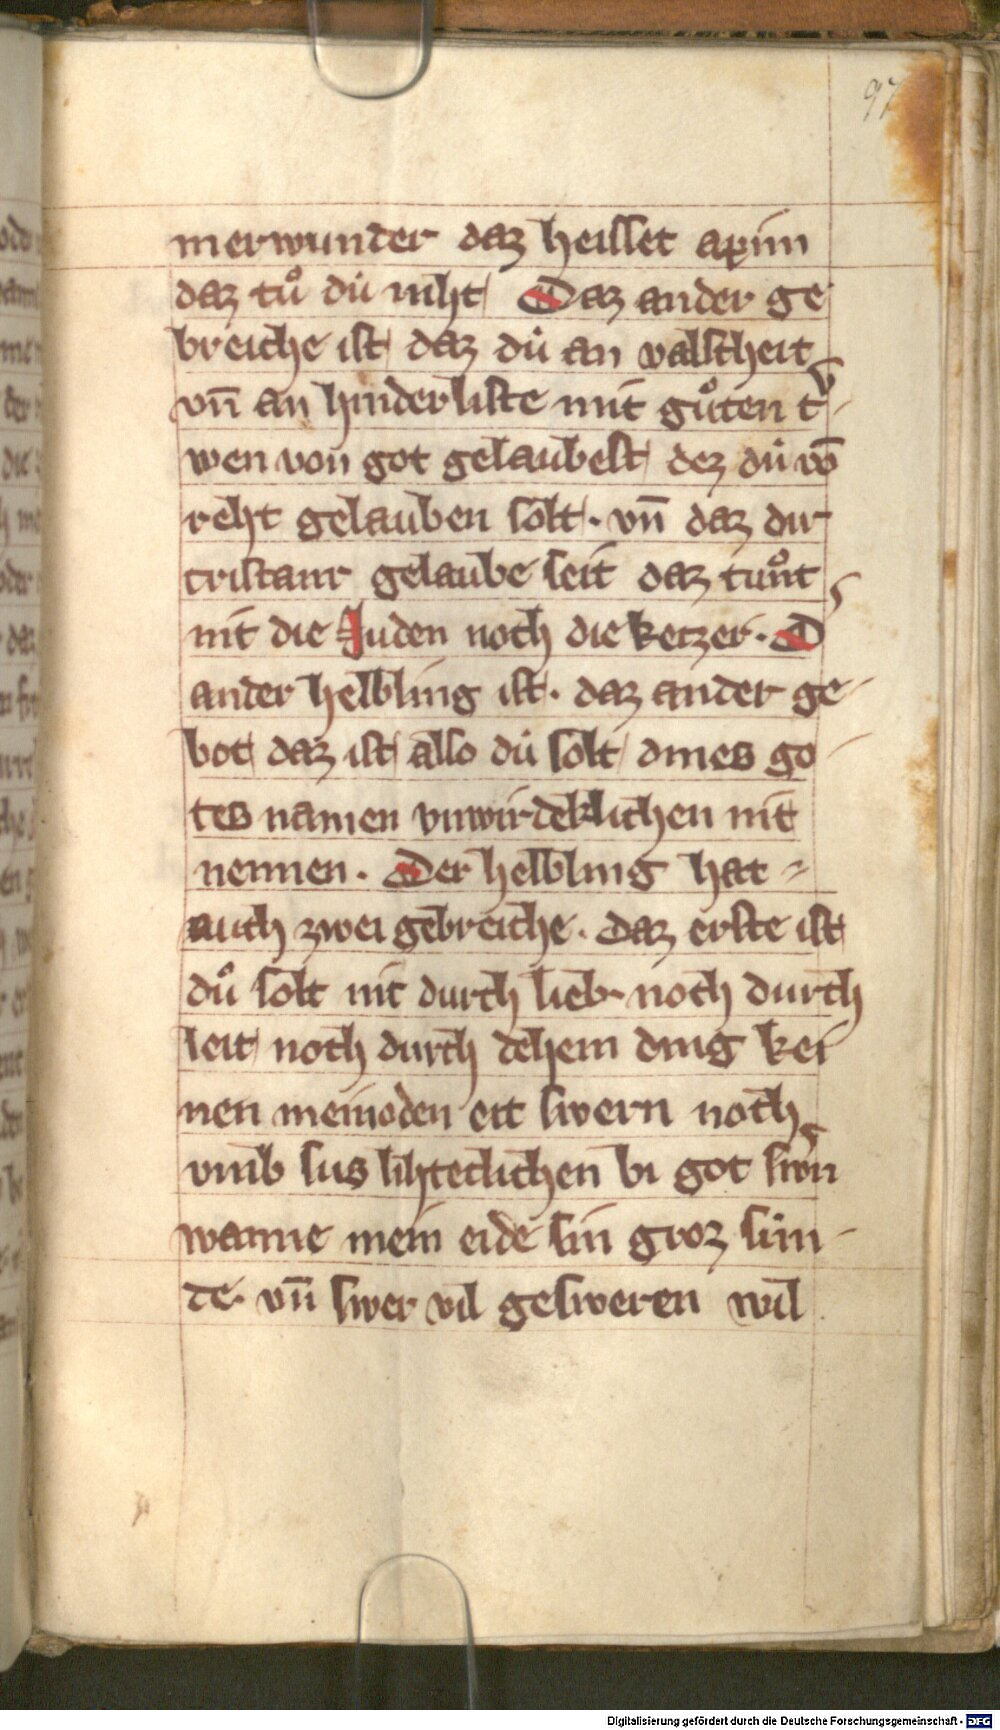 97
merwunder daz heisset apim
daz tuͦ du niht Daz ander ge
breiche ist daz du an valscheit
vn̄ an hinderliste mit guͦten tᵛ
wen von got gelaubest dez du vō
reht gelauben solt · vn̄ daz dir
cristanr gelaube seit daz tuͦnt
nit die Juden noch die ketzer · D
ander helbling ist · daz ander ge
bot daz ist also du solt dines go
tes namen vnwirdeklichen nit
nennen · Der helbling hat
auch zwei gebreiche · Daz erste ist
duͦ solt nit durch lieb noch durch
leit noch durch dehein ding kei
nen meinoden eit swern noch
vmb sus lihteclichen bi got swn̄
wanne mein eide sin groz sun
te · vn̄ swer vil gesweren wil
Digitalisierung gefördert durch die Deutsche Forschungsgemeinschaft - DFG